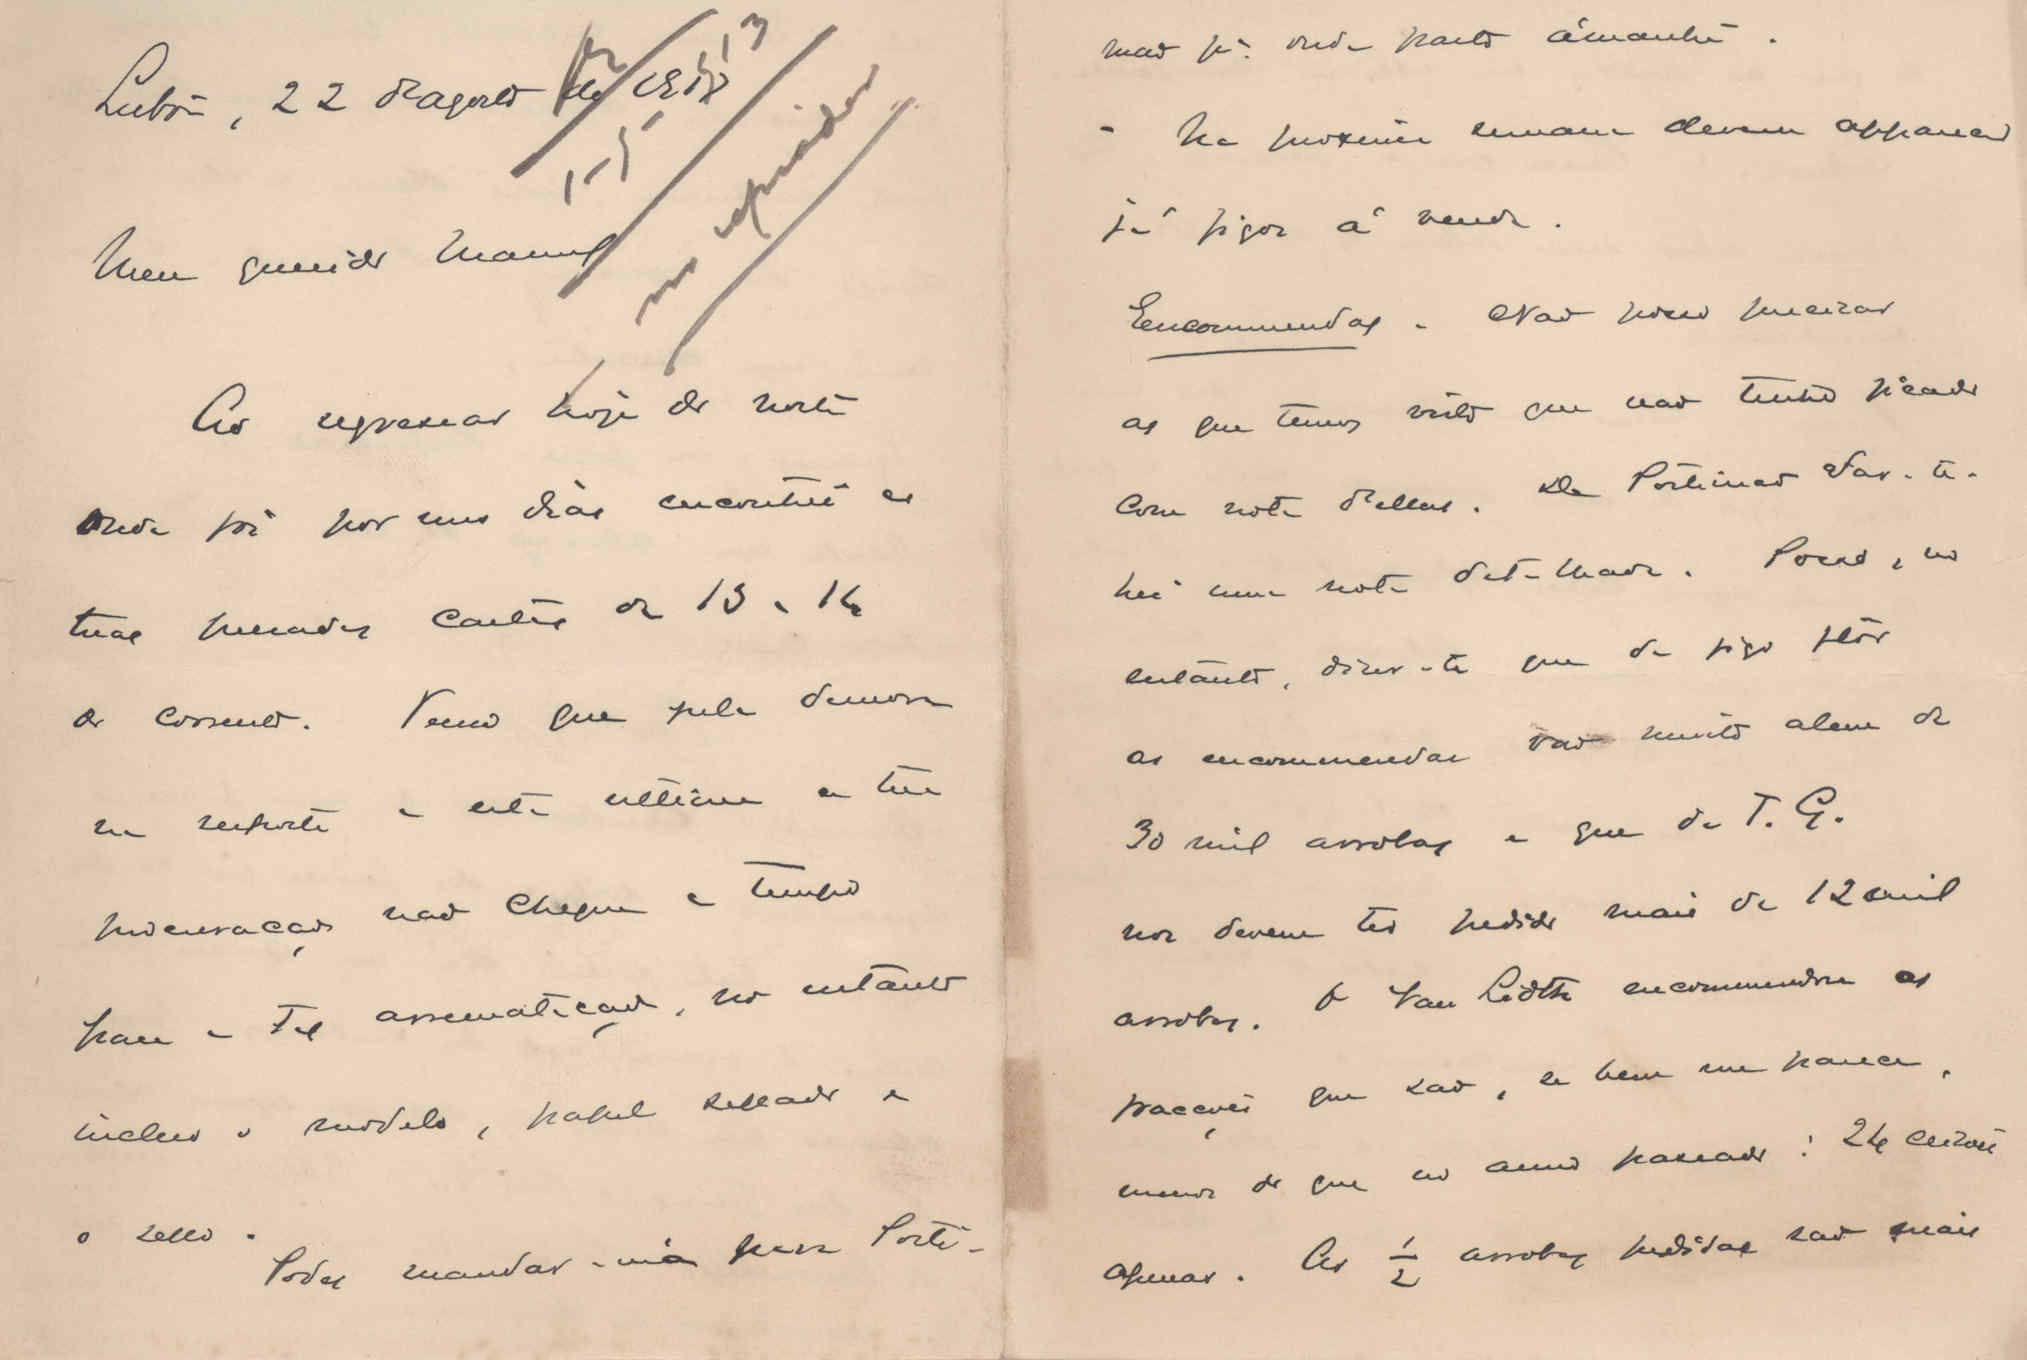 Lisboa, 22 d'agosto de
Meu querido Manuel
Ao regressar hoje do norte
onde fui por uns dias encontrei as
tuas presadas cartas de 13 e 14
do corrente. Temo que pela demora
na resposta a esta ultima a tua
procuração não chegue a tempo
para a tal arrematação, no entanto
incluo o modelo, papel sellado e
o sello.
Podes mandar-m'a para Porti-
mão p.ª onde parto ámanhã.
- Na proxima semana devem apparecer
já figos á venda.
Encommendas - Não posso precizar
as que temos visto que não tenho ficado
com nota d'ellas. De Portimão dar-te-
hei uma nota detalhada. Posso, no
entanto, dizer-te que de figo flôr
as encommendas vão muito alem de
30 mil arrobas e que de T. G.
nos devem ter pedido mais de 12 mil
arrobas. O Van Lidth encommendou as
fracções que são, se bem me parece,
menos do que no anno passado: 24
apenas. As 1/2 arrobas pedidas são mais